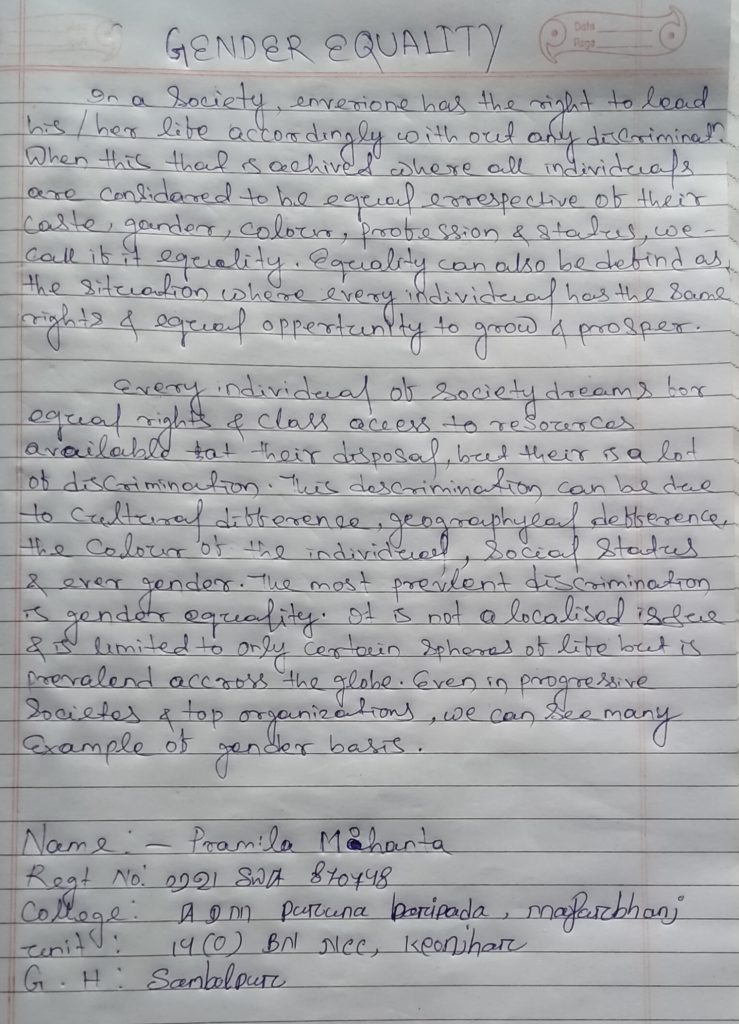 GENDER EQUALITY
Date
Page
In a Society, enverione has the right to lead
his / her life accordingly with out any discriminatn.
When this that is achived where all individuals
are considared to be equal errespective of their
caste, gander, colour, profession & status, we -
call it it equality. Equality can also be defind as,
the situation where every individual has the same
rights & equal oppertunity to grow & prosper.
Every individual of society dreams for
equal rights & class access to resources
available tat their disposal, but their is a lot
of discrimination. This descrimination can be due
to cultural difference, geographyeal defference,
the colour of the individual, social status
& even gender. The most prevlent discrimination
is gender equality. It is not a localised issue
& is limited to only certain spheres of life but is
prevalend accross the globe. Even in progressive
Societes & top organizations, we can see many
Example of gender basis.
Name: - Pramila Mohanta
Regt No: 0921 SWA 870748
College: ADM Puruna baripada, majurbhanj
unit: 14 (O) BN NCC, Keonjhar
G. H: Sambalpur